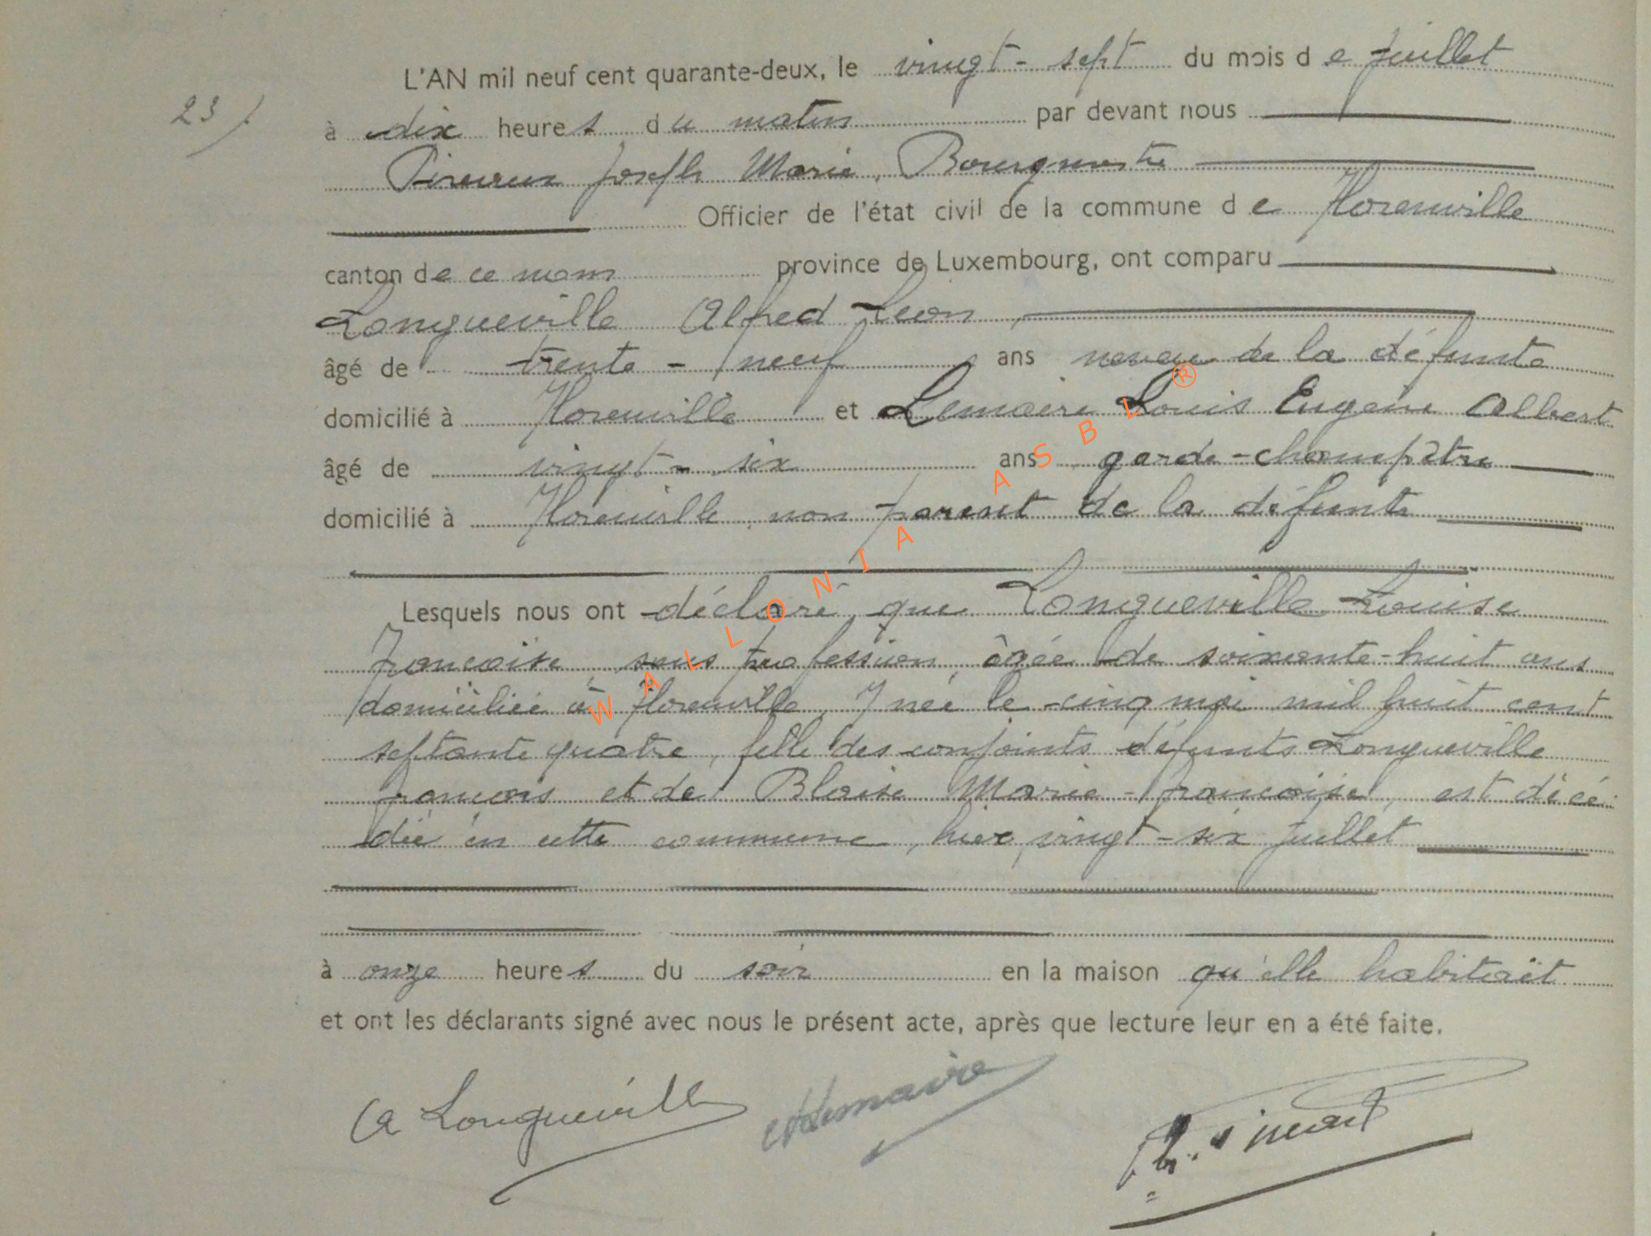 L'AN mil neuf cent quarante-deux, le vingt-sept du mois de Juillet
23/
à dix heures du matin par devant nous
Joseph Marie, Bourgmestre
Officier de l'état civil de la commune de Florenville
canton de ce nom province de Luxembourg, ont comparu
Longueville Alfred Léon,
âgé de trente-neuf ans neveu de la défunte
domicilié à Florenville et Lemaire Louis Eugène Albert
âgé de vingt-six ans garde-champêtre
domicilié à Florenville, non parent de la défunte
Lesquels nous ont déclaré que Longueville Louise
Françoise, sans profession, âgée de soixante-huit ans
domiciliée à Florenville, y née le cinq mai mil huit cent
septante quatre, fille des conjoints défunts Longueville
François et de Blaise Marie-Françoise, est décé-
dée en cette commune, hier, vingt-six Juillet
à onze heures du soir en la maison qu'elle habitait
et ont les déclarants signé avec nous le présent acte, après que lecture leur en a été faite.
A Longueville Lemaire
WALLONIA ASBL ®